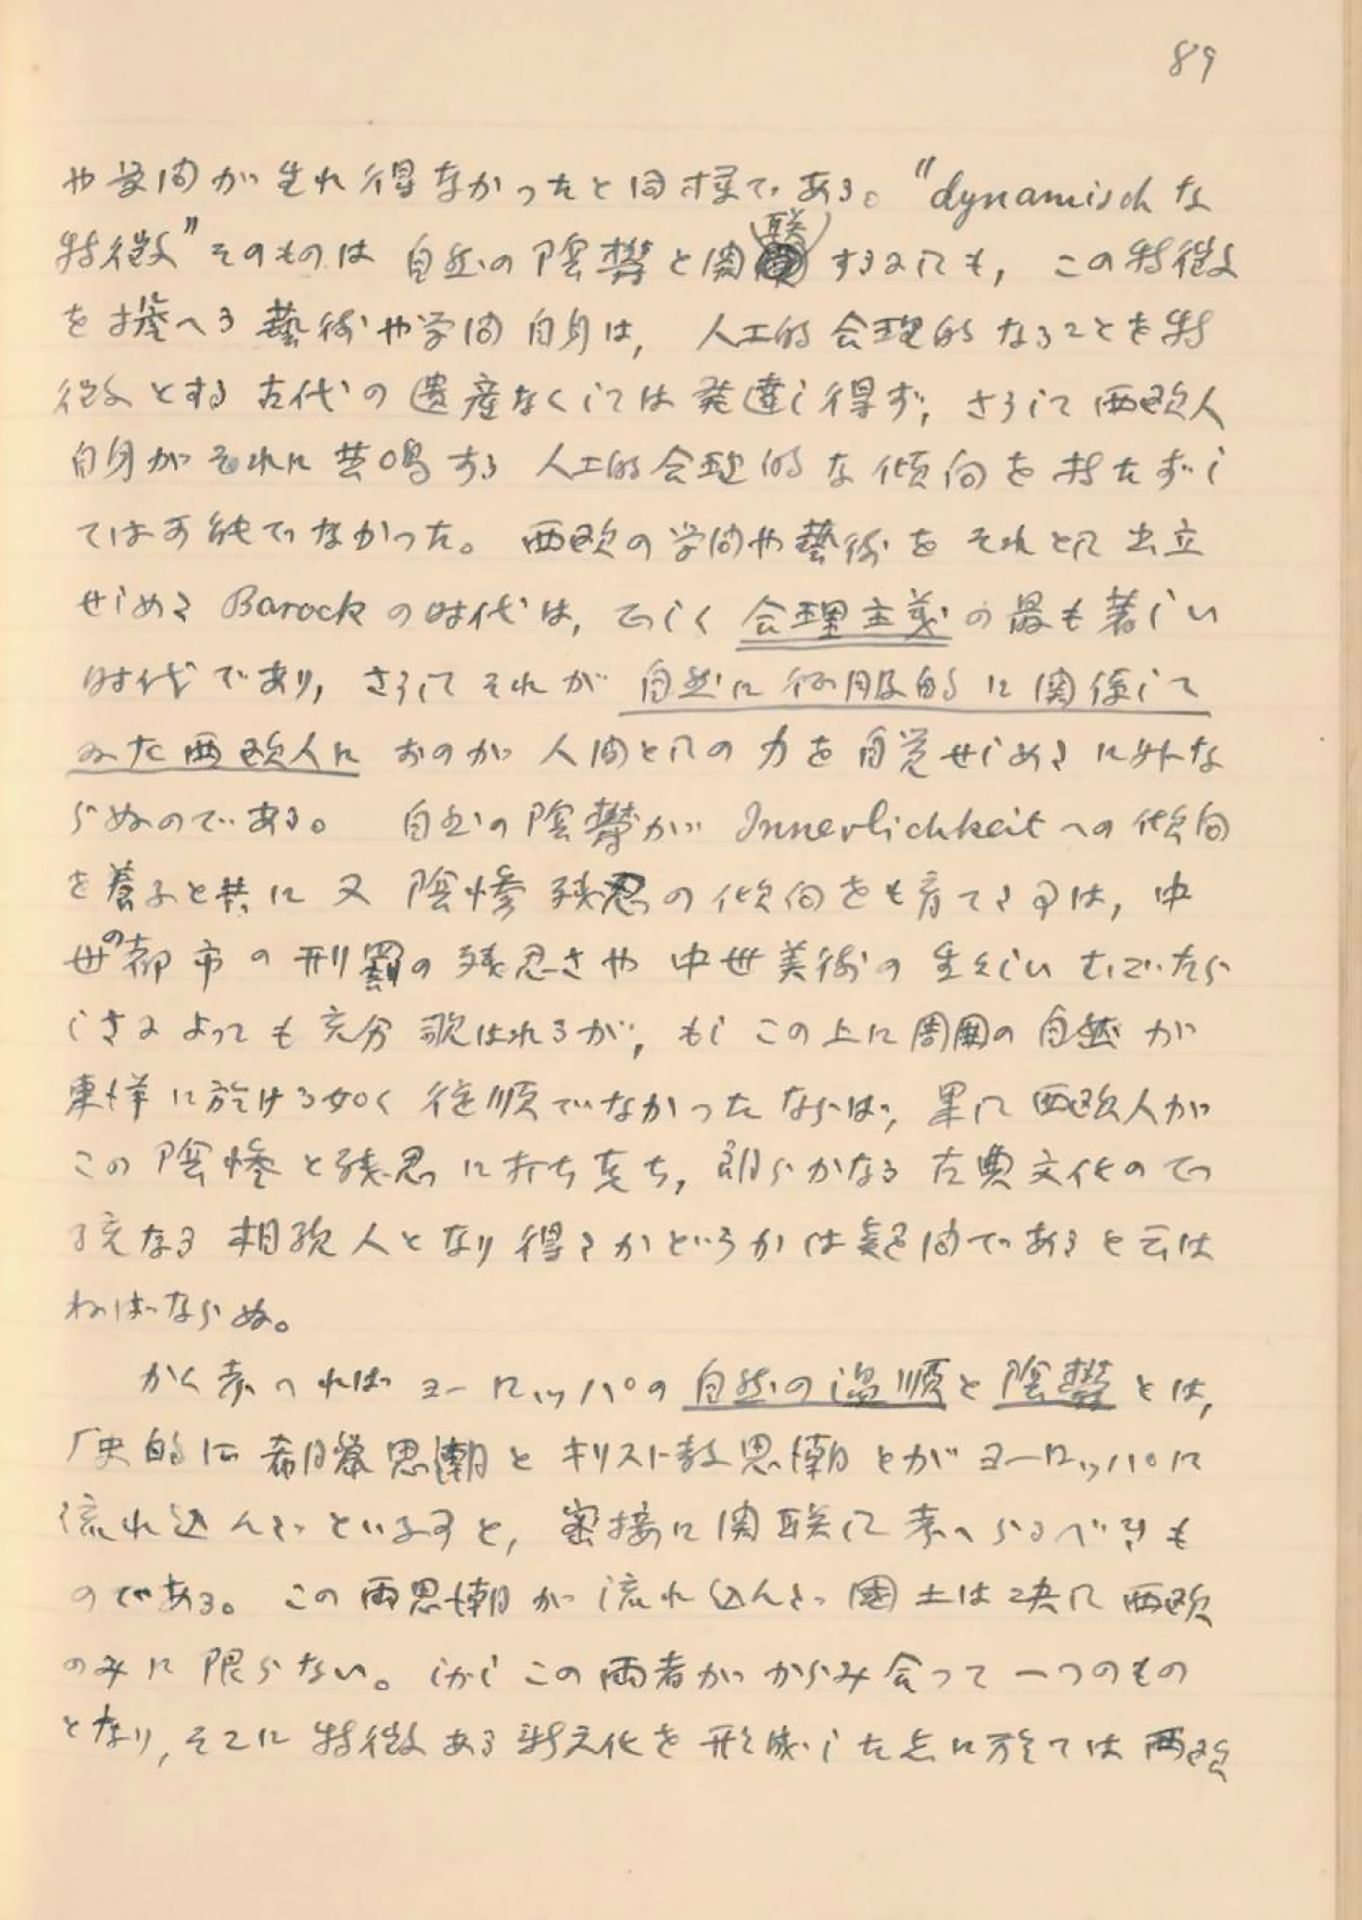 89
や学问が生れ得なかったと同様である。"dynamischな
特徴"そのものは自然の陰鬱と関聯するにしても, この特徴
を捉へる藝術や学问自身は, 人工的合理的なることを特
徴とする古代の遺産なくしては発達し得ず, さうして西欧人
自身がそれに共鳴する人工的合理的な傾向を持たずし
ては可能でなかった。西欧の学问や藝術をそれとして出立
せしめる Barock の时代は, 正しく合理主義の最も著しい
时代であり, さうしてそれが自然に征服的に関係して
ゐた西欧人におのが人间としての力を自覚せしめるに外な
らぬのである。 自然の陰鬱が Innerlichkeit への傾向
を養ふと共に又陰惨残忍の傾向をも育てる事は, 中
世の都市の刑罰の残忍さや中世美術の生々しいむごたら
しさによっても充分 はれるが, もしこの上に周囲の自然が
東洋に於ける如く従順でなかったならば, 果して西欧人が
この陰惨と残忍に打ち克ち, 朗らかなる古典文化の正
統なる相続人となり得るかどうかは疑问であると云は
ねばならぬ。
かく考へればヨーロッパの自然の温順と陰鬱とは,
歴史的に希臘思潮とキリスト教思潮とがヨーロッパに
流れ込んだといふ事と, 密接に関聯して考へらるべきも
のである。この両思潮が流れ込んだ國土は决して西欧
のみに限らない。しかしこの両者がからみ会って一つのもの
となり, そこに特徴ある新文化を形成した点に於ては西欧